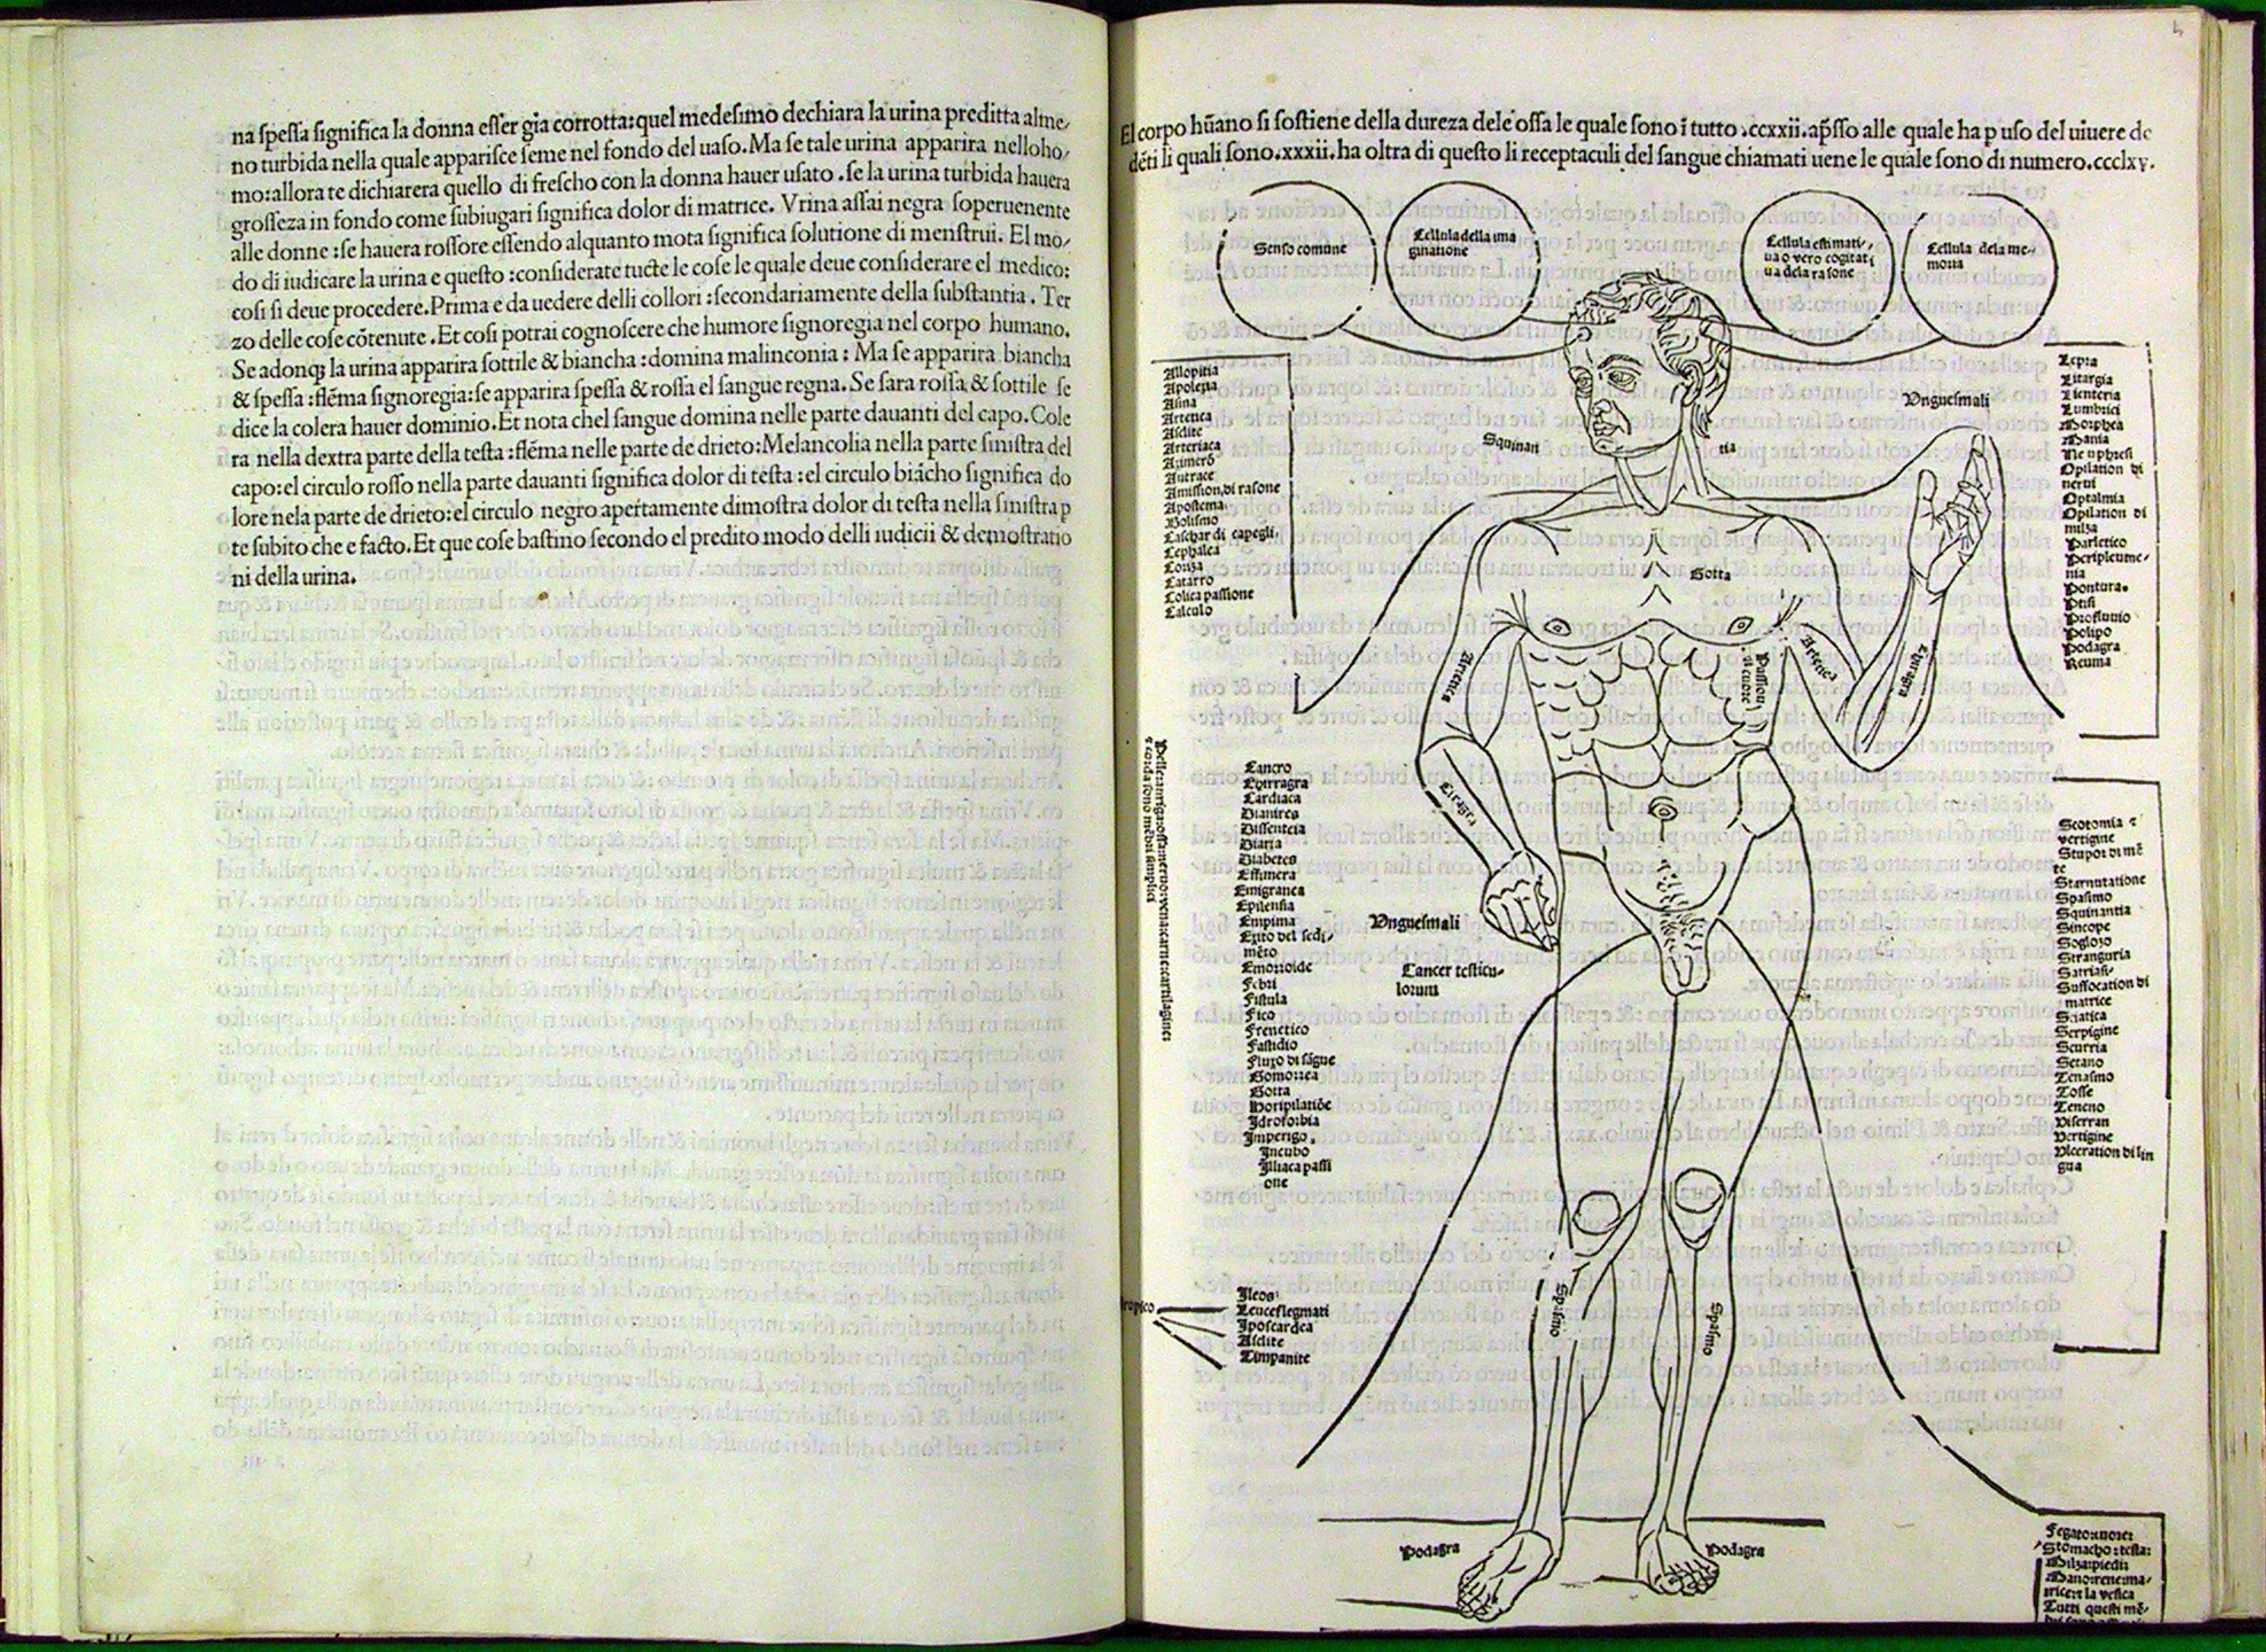 na ſpeſſa ſignifica la donna eſſer gia corrotta:quel medeſimo dechiara la urina preditta alme,
no turbida nella quale appariſce ſeme nel fondo del uaſo.Ma ſe tale urina apparira nelloho,
mo:allora te dichiarera quello di freſcho con la donna hauer uſato .ſe la urina turbida hauera
groſſeza in fondo come ſubiugari ſignifica dolor di matrice. Vrina aſſai negra ſoperuenente
alle donne :ſe hauera roſſore eſſendo alquanto mota ſignifica ſolutione di menſtrui. El mo,
do di iudicare la urina e queſto :conſiderate tucte le coſe le quale deue conſiderare el medico:
coſi ſi deue procedere.Prima e da uedere delli collori :ſecondariamente della ſubſtantia. Ter
zo delle coſe cōtenute .Et coſi potrai cognoſcere che humore ſignoregia nel corpo humano.
Se adonqꝫ la urina apparira ſottile & biancha :domina malinconia : Ma ſe apparira biancha
& ſpeſſa :flēma ſignoregia:ſe apparira ſpeſſa & roſſa el ſangue regna. Se ſara roſſa & ſottile ſe
dice la colera hauer dominio.Et nota chel ſangue domina nelle parte dauanti del capo. Cole
ra nella dextra parte della teſta :flēma nelle parte de drieto:Melancolia nella parte ſiniſtra del
capo:el circulo roſſo nella parte dauanti ſignifica dolor di teſta :el circulo biācho ſignifica do
lore nela parte de drieto:el circulo negro apertamente dimoſtra dolor di teſta nella ſiniſtra p
te ſubito che e facto.Et que coſe baſtino ſecondo el predito modo delli iudicii & demoſtratio
ni della urina.
El corpo hūano ſi ſoſtiene della dureza dele oſſa le quale ſono ī tutto .ccxxii. apſſo alle quale ha p uſo del uiuere de
dēti li quali ſono.xxxii.ha oltra di queſto li receptaculi del ſangue chiamati uene le quale ſono di numero.ccclxv.
Senſo comune
Cellula della ima
ginatione
Cellula eſtimati,
ua o vero cogitati
ua dela raſone
Cellula dela me-
moria
Allopitia
Apoleſia
Aſma
Artetica
Aſclite
Arteriaca
Antrace
Amiſſion di raſone
Apoſtema
Boliſmo
Caſchar di capegli
Cephalea
Coriza
Catarro
Colica paſſione
Calculo
Squinan
tia
Unguesmali
Lepra
Litargia
Lienteria
Lumbrici
Morphea
Mania
Neuphreſi
Opilation di
nerui
Optalmia
Opilation di
milza
Parletico
Peripleume-
nia
Pontura.
Ptiſi
Profluuio
Polipo
Podagra
Reuma
Gotta
Artetica
Paſſion
di cuore
Artetica
Chiragra
Ciragra
Cancro
Chirragra
Cardiaca
Diſſenteria
Diaria
Diabetes
Effimera
Emigranea
Epilenſia
Empima
Exito del ſedi,
mēto
Emorroide
Febri
Fiſtula
Fico
Frenetico
Faſtidio
Fluxo di ſāgue
Gomorrea
Gotta
Horipilatiōe
Idroforbia
Imperigo.
Incubo
Illiaca paſſi
one
Unguesmali
Cancer teſticu-
lorum
Scotomia ⁊
vertigine
Stupor di mē
te
Starnutatione
Spaſimo
Squinantia
Sincope
Sogloзo
Stranguria
Satriaſi
Suffocation di
matrice
Sciatica
Serpigine
Scurria
Setano
Tenaſmo
Toſſe
Veneno
Viſerran
Vertigine
Ulceration di lin
gua
Ileon
Leucoflegmati
Ipoſcarcea
Aſclite
Timpanite
Spaſimo
Spaſimo
Podagra
Podagra
Stomacho:teſta:
Milza:piedi:
Mano:rene:ma,
trice:⁊ la veſica
Tutti queſti mē,